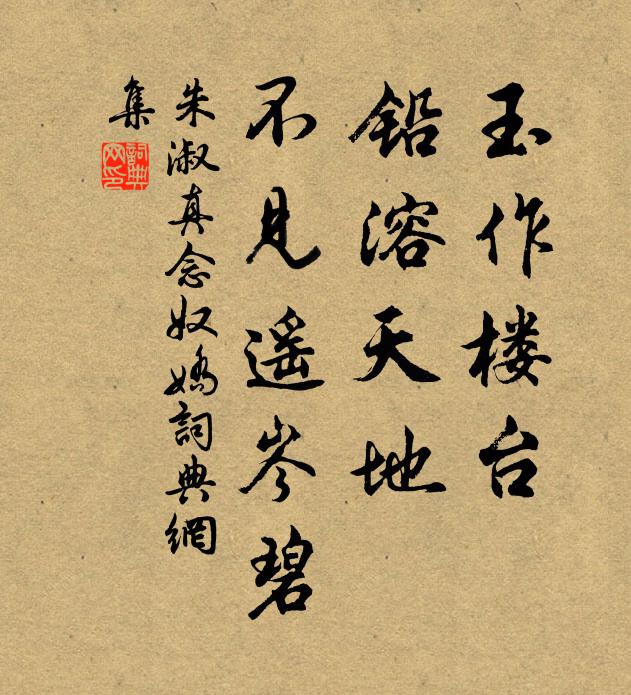 玉作楼台
铅溶天地
不见遥岑碧
朱淑真念奴娇詞典網
集
詞典
网印